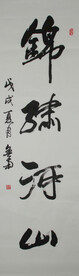 錦繡河山
戊戌夏月